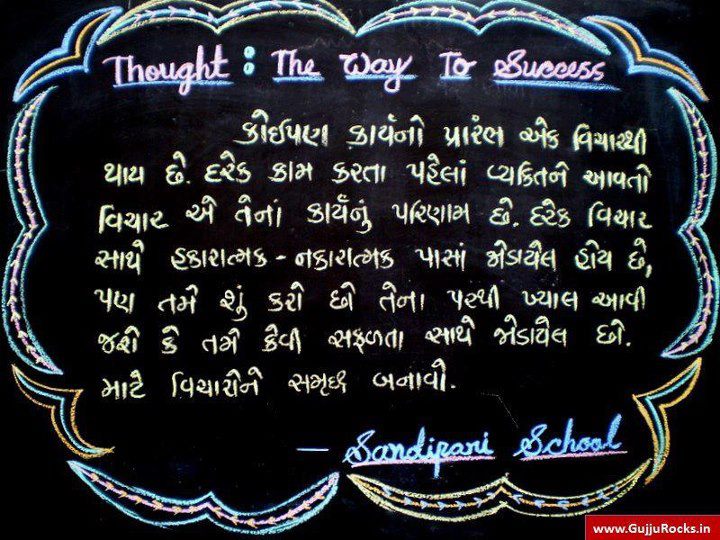 Thought : The Way To Success
કોઈપણ કાર્યનો પ્રારંભ એક વિચારથી
થાય છે. દરેક કામ કરતા પહેલાં વ્યકિતને આવતો
વિચાર એ તેનાં કાર્યનું પરિણામ છે. દરેક વિચાર
સાથે હકારાત્મક - નકારાત્મક પાસાં જોડાયેલ હોય છે,
પણ તમે શું કરો છો તેના પરથી ખ્યાલ આવી
જશે કે તમે કેવી સફળતા સાથે જોડાયેલ છો.
માટે વિચારોને સમૃધ્ધ બનાવો.
- Sandipani School
www.GujjuRocks.in